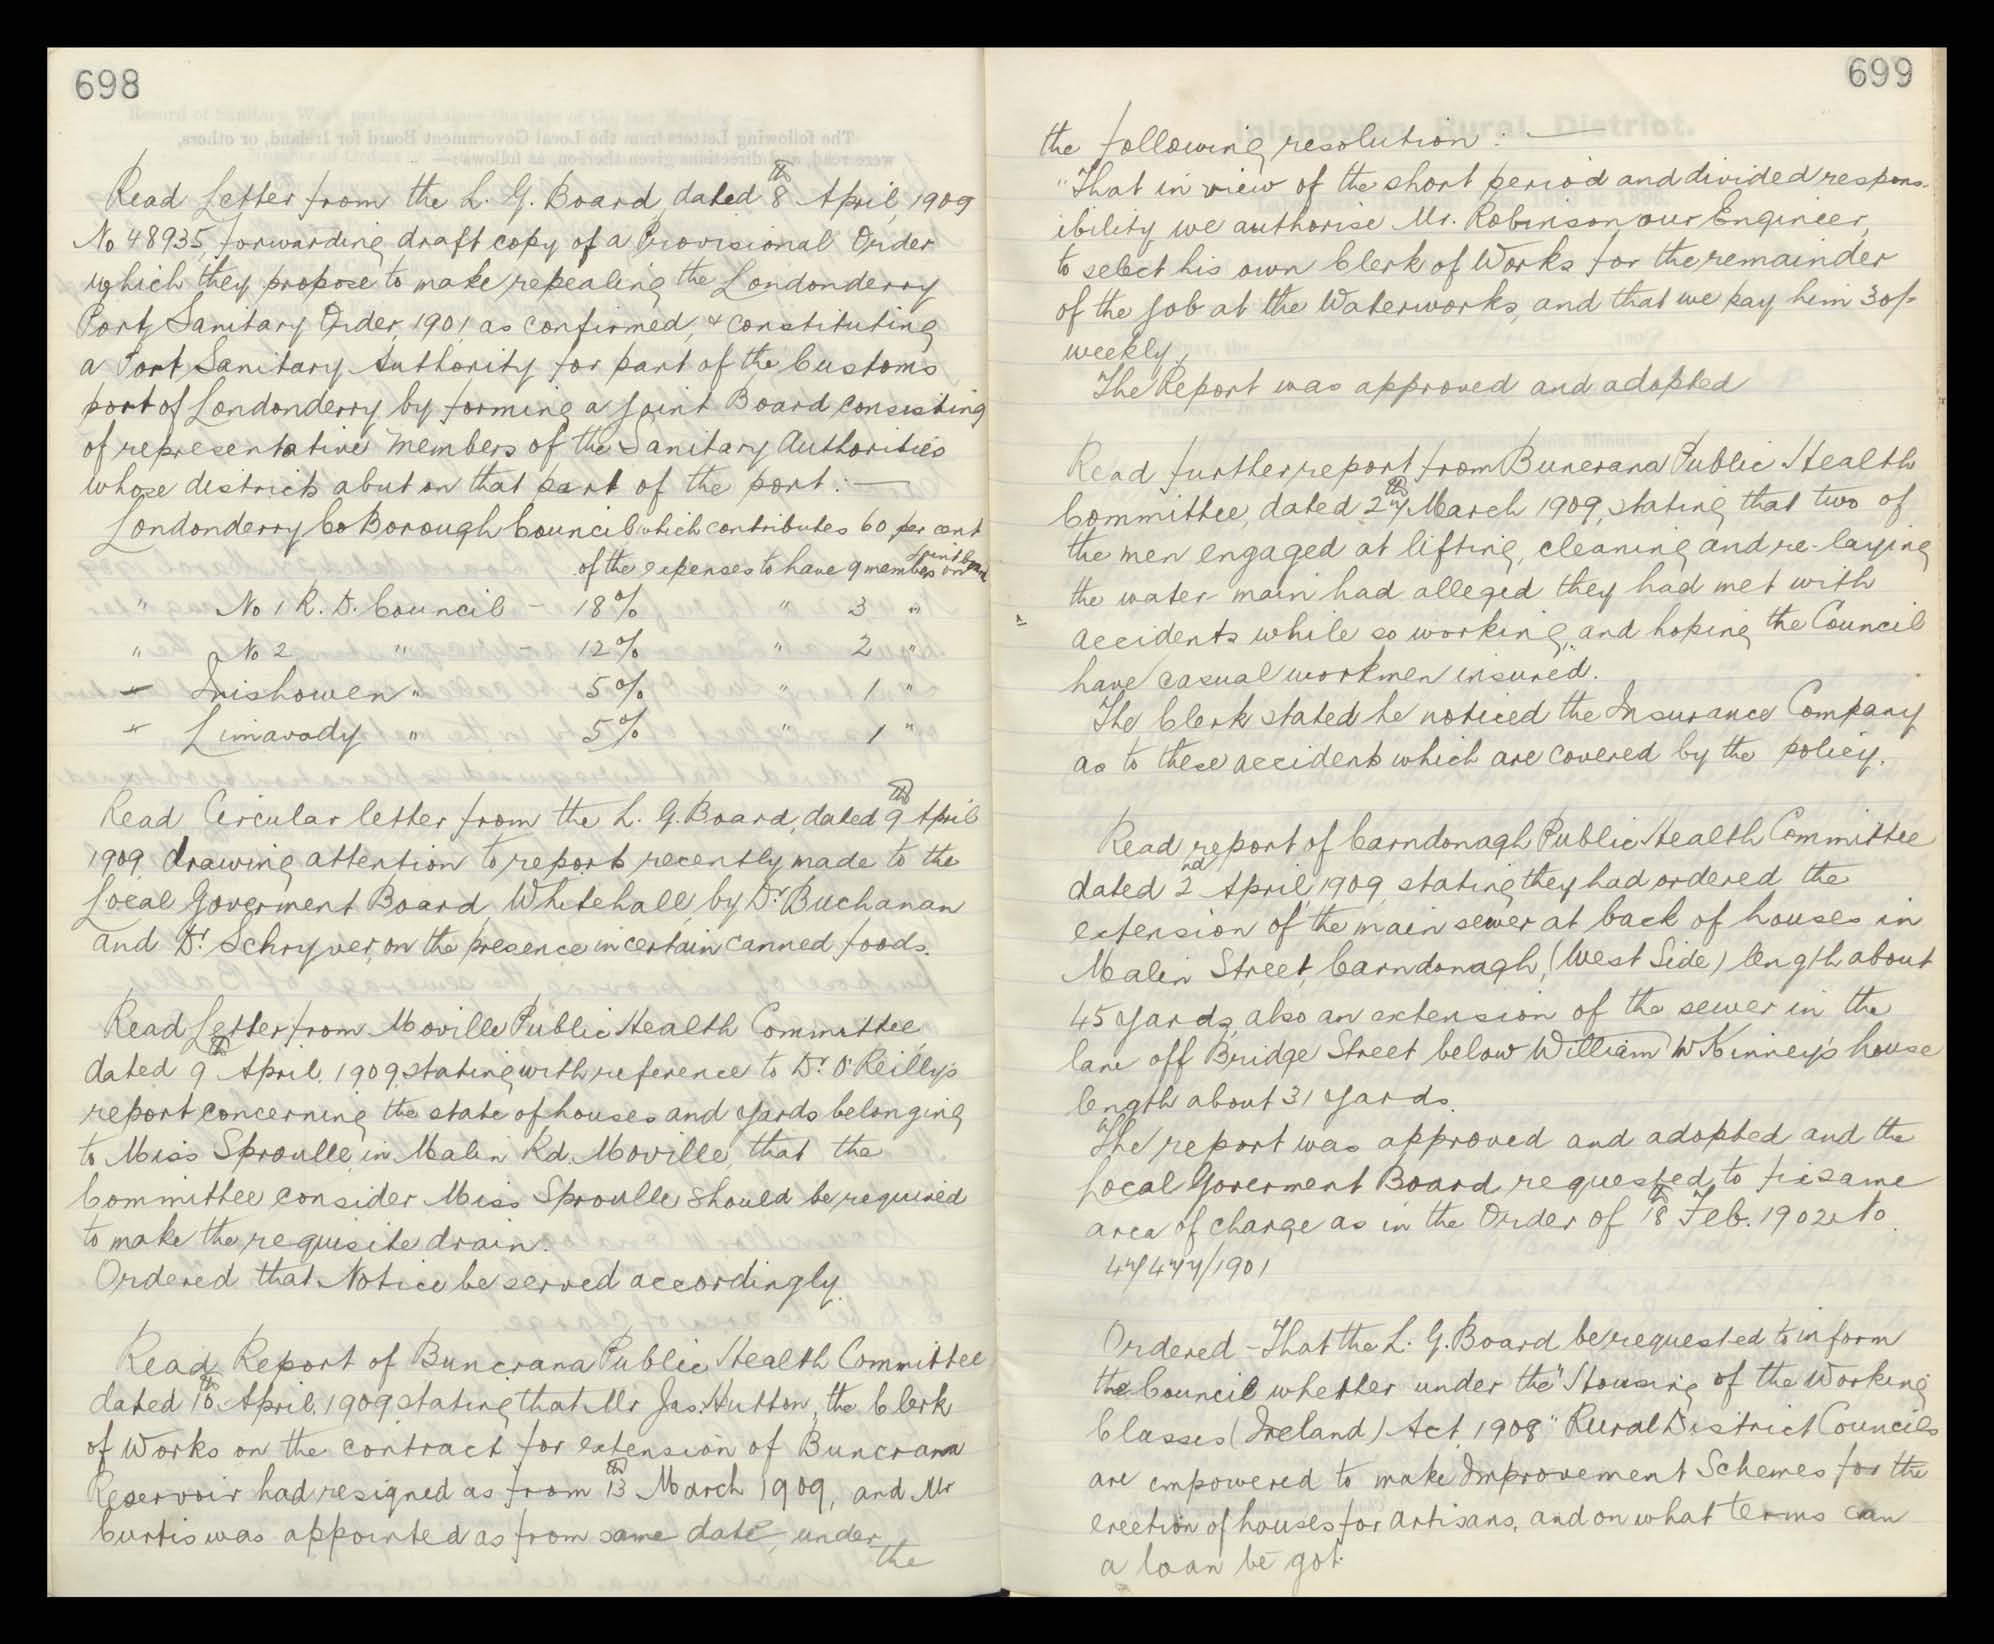 698
Read Letter from the L. G. Board, dated 8th April, 1909
No 48935, forwarding draft copy of a Provisional Order
which they propose to make repealing the Londonderry
Port Sanitary Order, 1901, as confirmed, & constituting
a Port Sanitary Authority for part of the Customs
port of Londonderry by forming a Joint Board consisting
of representative members of the Sanitary Authorities
whose districts abut on that part of the port :—
Londonderry Co Borough Council which contributes 60 per cent
of the expenses to have 9 members on Joint Board
" No 1 R. D. Council - 18% " 3 "
" No 2 " - 12% " 2 "
" Inishowen " 5% " 1 "
" Limavady " 5% " 1 "
Read Circular letter from the L. G. Board, dated 9th April
1909, drawing attention to reports recently made to the
Local Goverment Board, Whitehall, by Dr Buchanan
and Dr. Schryver, on the presence in certain canned foods.
Read Letter from Moville Public Health Committee,
dated 9th April, 1909, stating with reference to Dr. O'Reilly's
report concerning the state of houses and yards belonging
to Miss Sproulle, in Malin Rd. Moville, that the
Committee consider Miss Sproulle should be required
to make the requisite drain.
Ordered that Notice be served accordingly.
Read Report of Buncrana Public Health Committee
dated 10th April, 1909 stating that Mr Jas. Hutton, the Clerk
of Works on the contract for extension of Buncrana
Reservoir had resigned as from 13th March 1909, and Mr
Curtis was appointed as from same date, under
the
699
the following resolution :—
"That in view of the short period and divided respons-
ibility we authorise Mr. Robinson our Engineer,
to select his own Clerk of Works for the remainder
of the job at the Waterworks, and that we pay him 30/-
weekly,
The Report was approved and adopted
Read further report from Buncrana Public Health
Committee, dated 27th March 1909, stating that two of
the men engaged at lifting, cleaning and re-laying
the water-main had alleged they had met with
accidents while so working, and hoping the Council
have casual workmen insured.
The Clerk stated he noticed the Insurance Company
as to these accidents which are covered by the policy.
Read report of Carndonagh Public Health Committee
dated 2nd April, 1909, stating they had ordered the
extension of the main sewer at back of houses in
Malin Street, Carndonagh, (West Side) length about
45 yards, also an extension of the sewer in the
lane off Bridge Street below William McKinney's house
length about 31 yards.
The report was approved and adopted and the
Local Goverment Board requested to fix same
area of charge as in the Order of 18th Feb. 1902 No.
47477/1901
Ordered - That the L. G. Board be requested to inform
the Council whether under the "Housing of the Working
Classes (Ireland) Act, 1908" Rural District Councils
are empowered to make Improvement Schemes for the
erection of houses for artisans, and on what terms can
a loan be got.